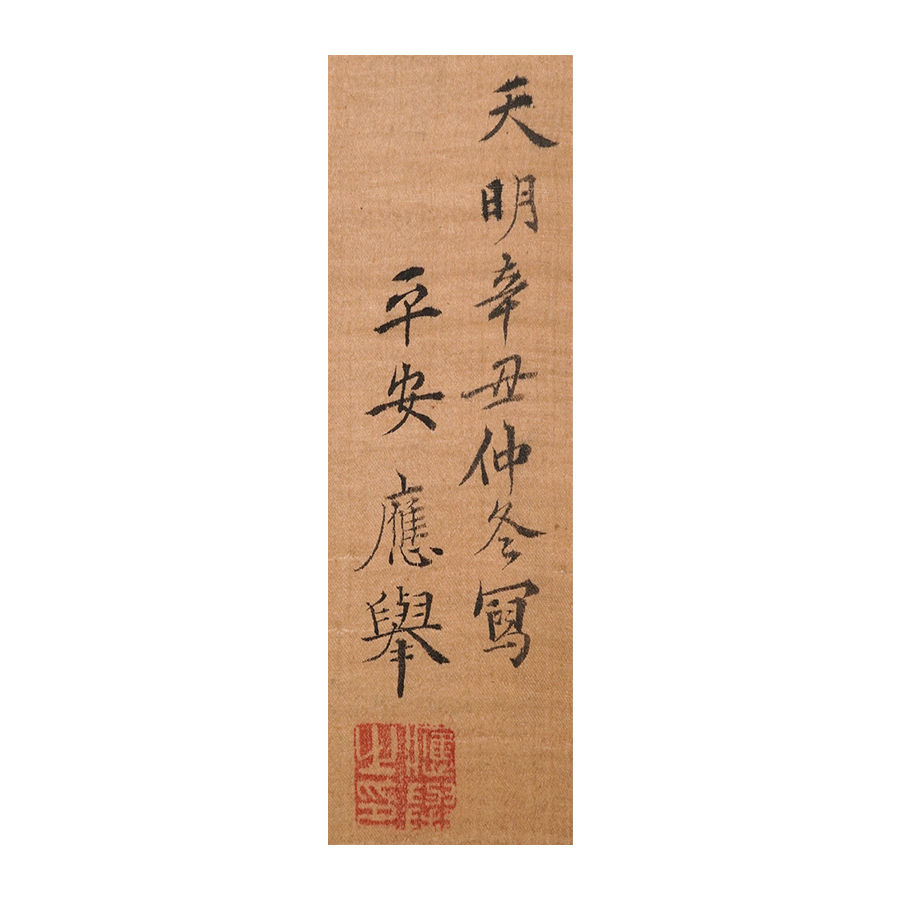 天明辛丑仲冬寫
平安應舉
應舉
之印